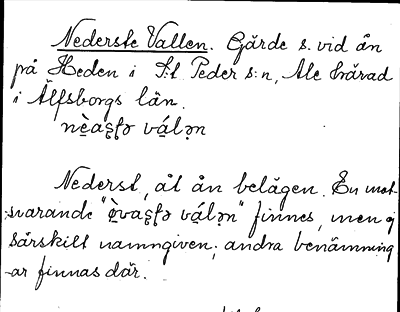 Nederste Vallen. Gärde s. vid ån
på Heden i S:t Peder s:n, Ale härad
i Älfsborgs län.
Nederst, åt ån belägen. En mot-
svarande finnes, men ej
särskilt namngiven; andra benämning
-ar finnas där.